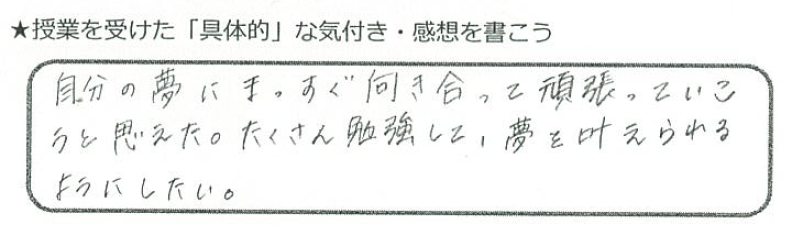 ★授業を受けた「具体的」な気付き・感想を書こう
自分の夢にまっすぐ向き合って頑張っていこ
うと思えた。たくさん勉強して、夢を叶えられる
ようにしたい。